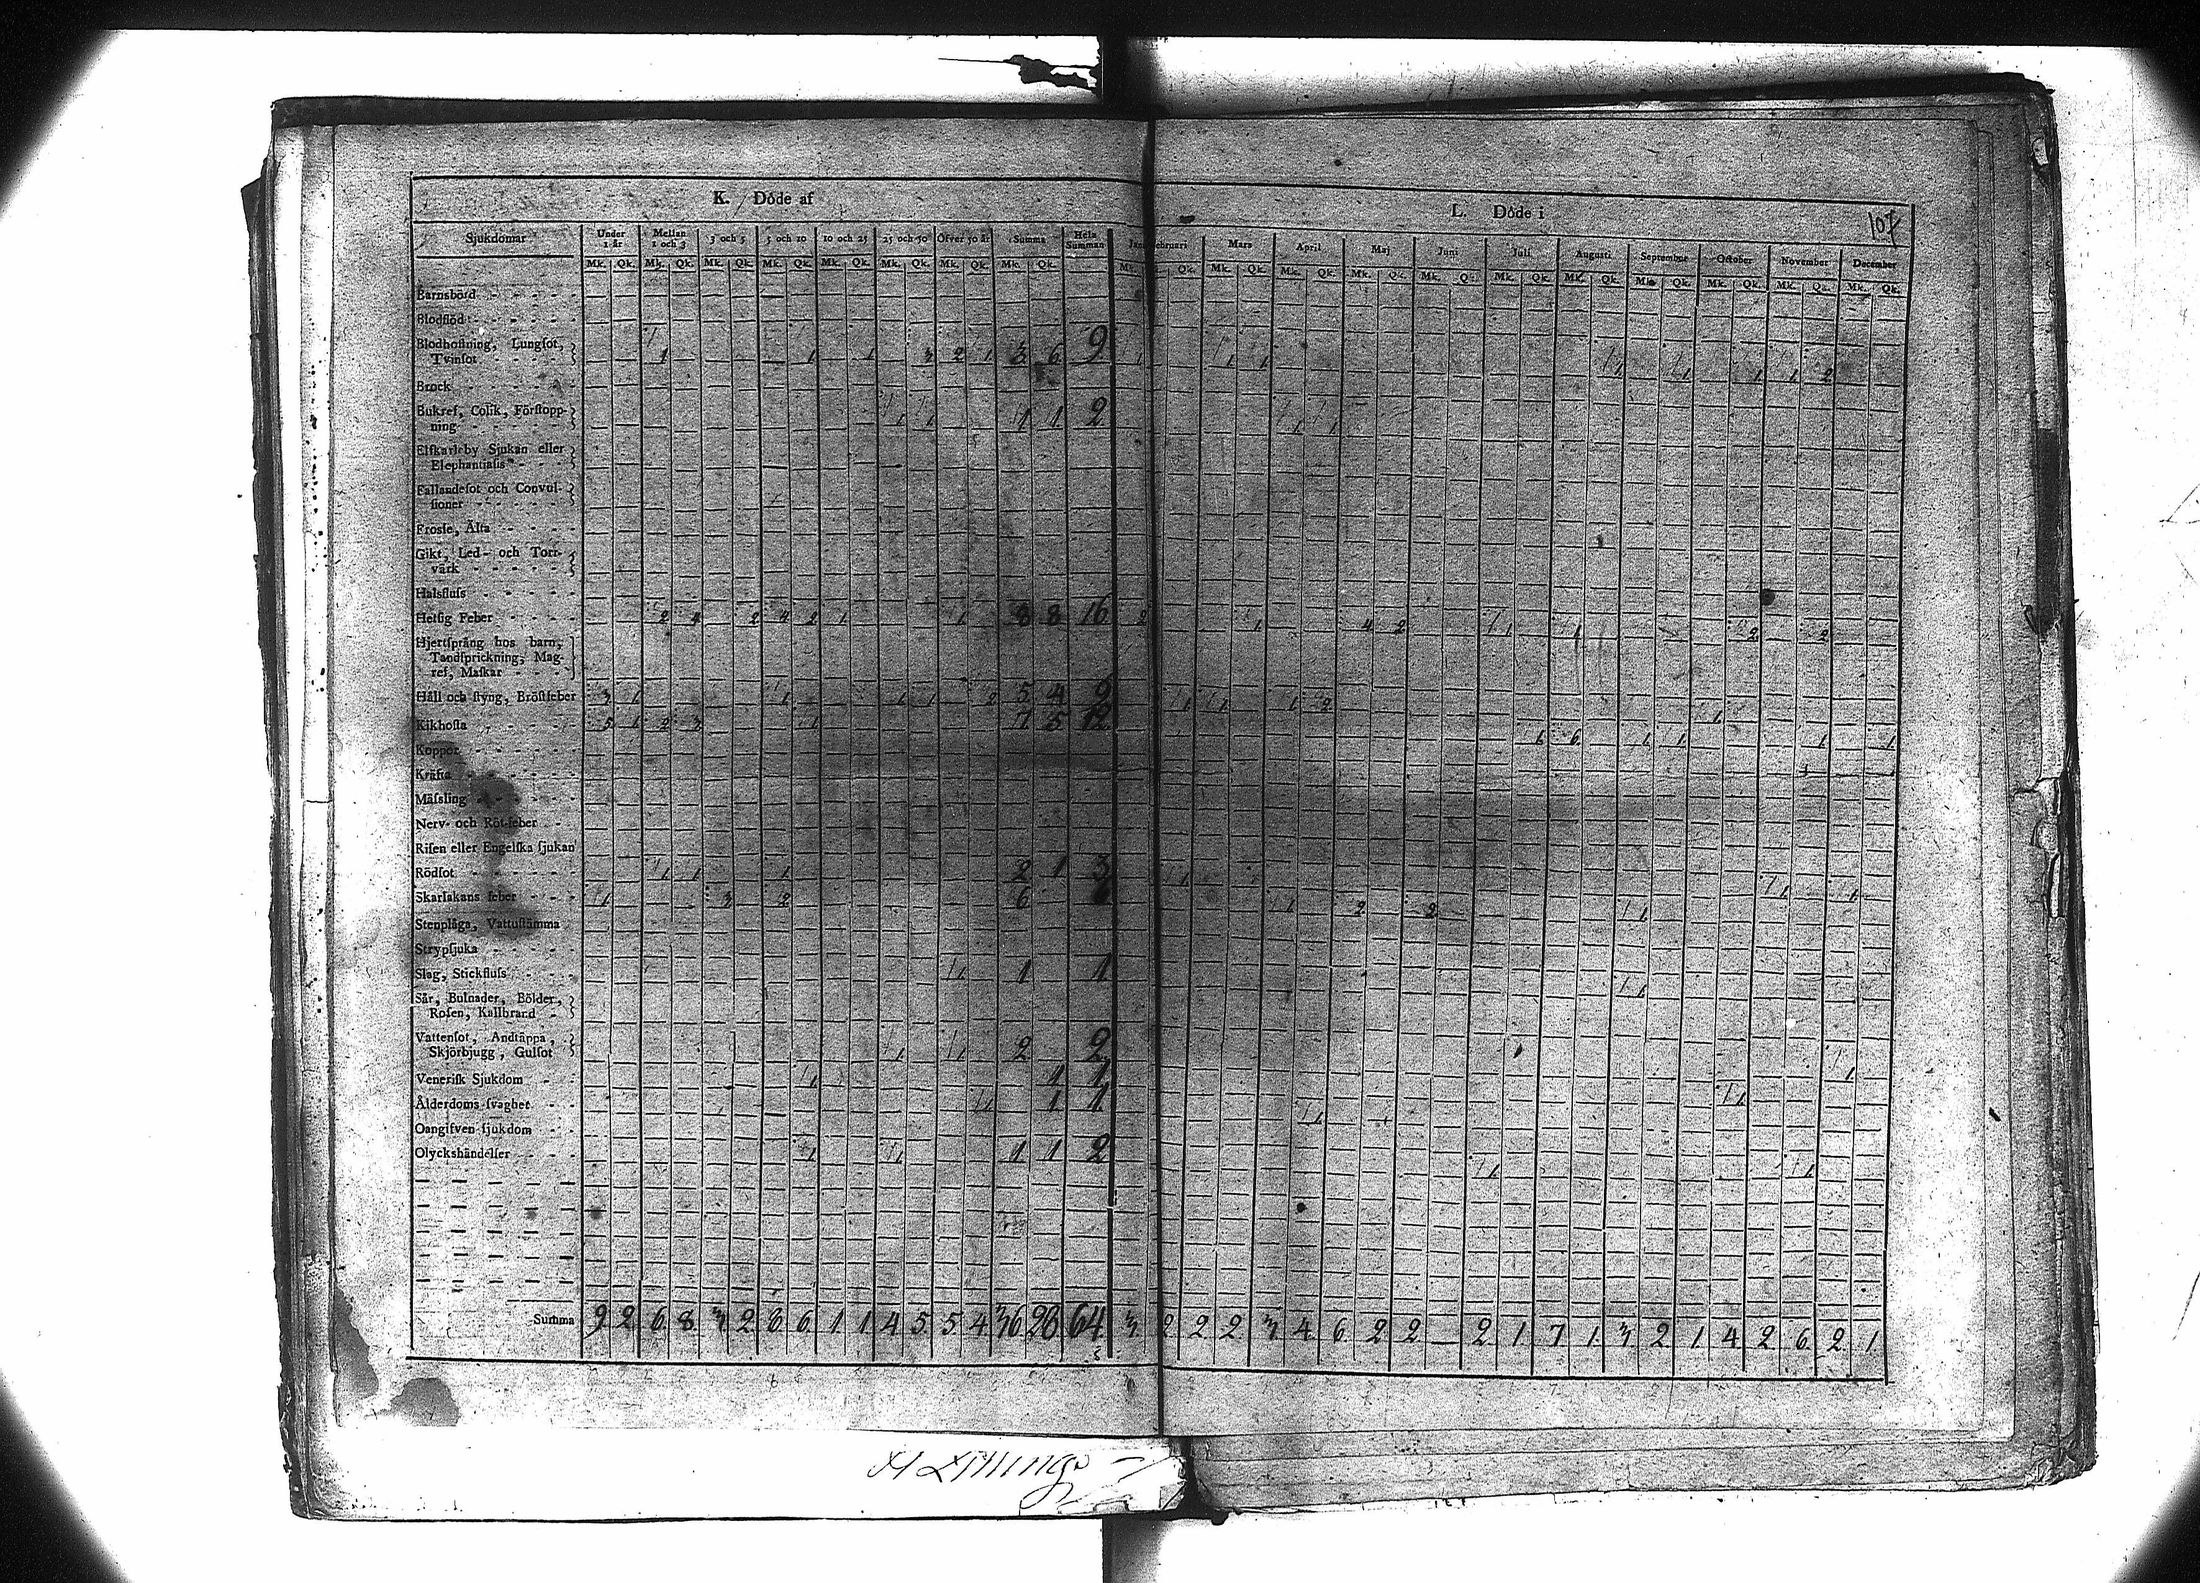 K. Döde af
L. Döde i
107
Sjukdomar
Under 1 år Mellan 1 och 3 3 och 5 5 och 10 10 och 25 25 och 50 Öfver 50 år Summa Hela Summan
Februari Mars April Maj Juni Juli Augusti September October November December
Mk. Qk. Mk. Qk. Mk. Qk. Mk. Qk. Mk. Qk. Mk. Qk. Mk. Qk. Mk. Qk.
Mk. Qk. Mk. Qk. Mk. Qk. Mk. Qk. Mk. Qk. Mk. Qk. Mk. Qk. Mk. Qk. Mk. Qk. Mk. Qk. Mk. Qk.
Barnsbörd
Blodflöd
Blodhoſtning, Lungſot,
Tvinſot 1 1 1 3 2 1 3 6 9 1 1 1 1 1 1 1 2
Brock
Bukref, Colik, Förſtopp-
ning 1 1 1 1 2 1 1
Elfkarleby Sjukan eller
Elephantiaſis
Fallandeſot och Convul-
ſioner
Froſſe, Älta
Gikt, Led- och Torr-
värk
Halsfluſs
Hetſig Feber 2 4 2 4 2 1 1 8 8 16 2 1 4 2 1 1 2 2
Hjertſprång hos barn,
Tandſprickning, Mag-
ref, Maſkar
Håll och ſtyng, Bröſtfeber 3 1 1 1 1 2 5 4 9 1 1 1 2 1
Kikhoſta 5 1 2 3 1 7 5 12 1 6 1 1 1 1
Koppor
Kräfta
Mäſsling
Nerv- och Röt-feber
Riſen eller Engelſka ſjukan
Rödſot 1 1 1 2 1 3 1 1 1
Skarlakans feber 1 3 2 6 6 1 2 2 1
Stenplåga, Vattuſtämma
Strypſjuka
Slag, Stickfluſs 1 1 1 1
Sår, Bulnader, Bölder,
Roſen, Kallbrand
Vattenſot, Andtäppa,
Skjörbjugg, Gulſot 1 1 2 2 1
Veneriſk Sjukdom 1 1 1 1
Ålderdoms-ſvaghet 1 1 1 1
Oangifven ſjukdom
Olyckshändelſer 1 1 1 1 2 1 1
Summa 9 2 6 8 3 2 8 6 1 1 4 5 5 4 36 28 64 3 2 2 2 3 4 6 2 2 — 2 1 7 1 3 2 1 4 2 6 2 1